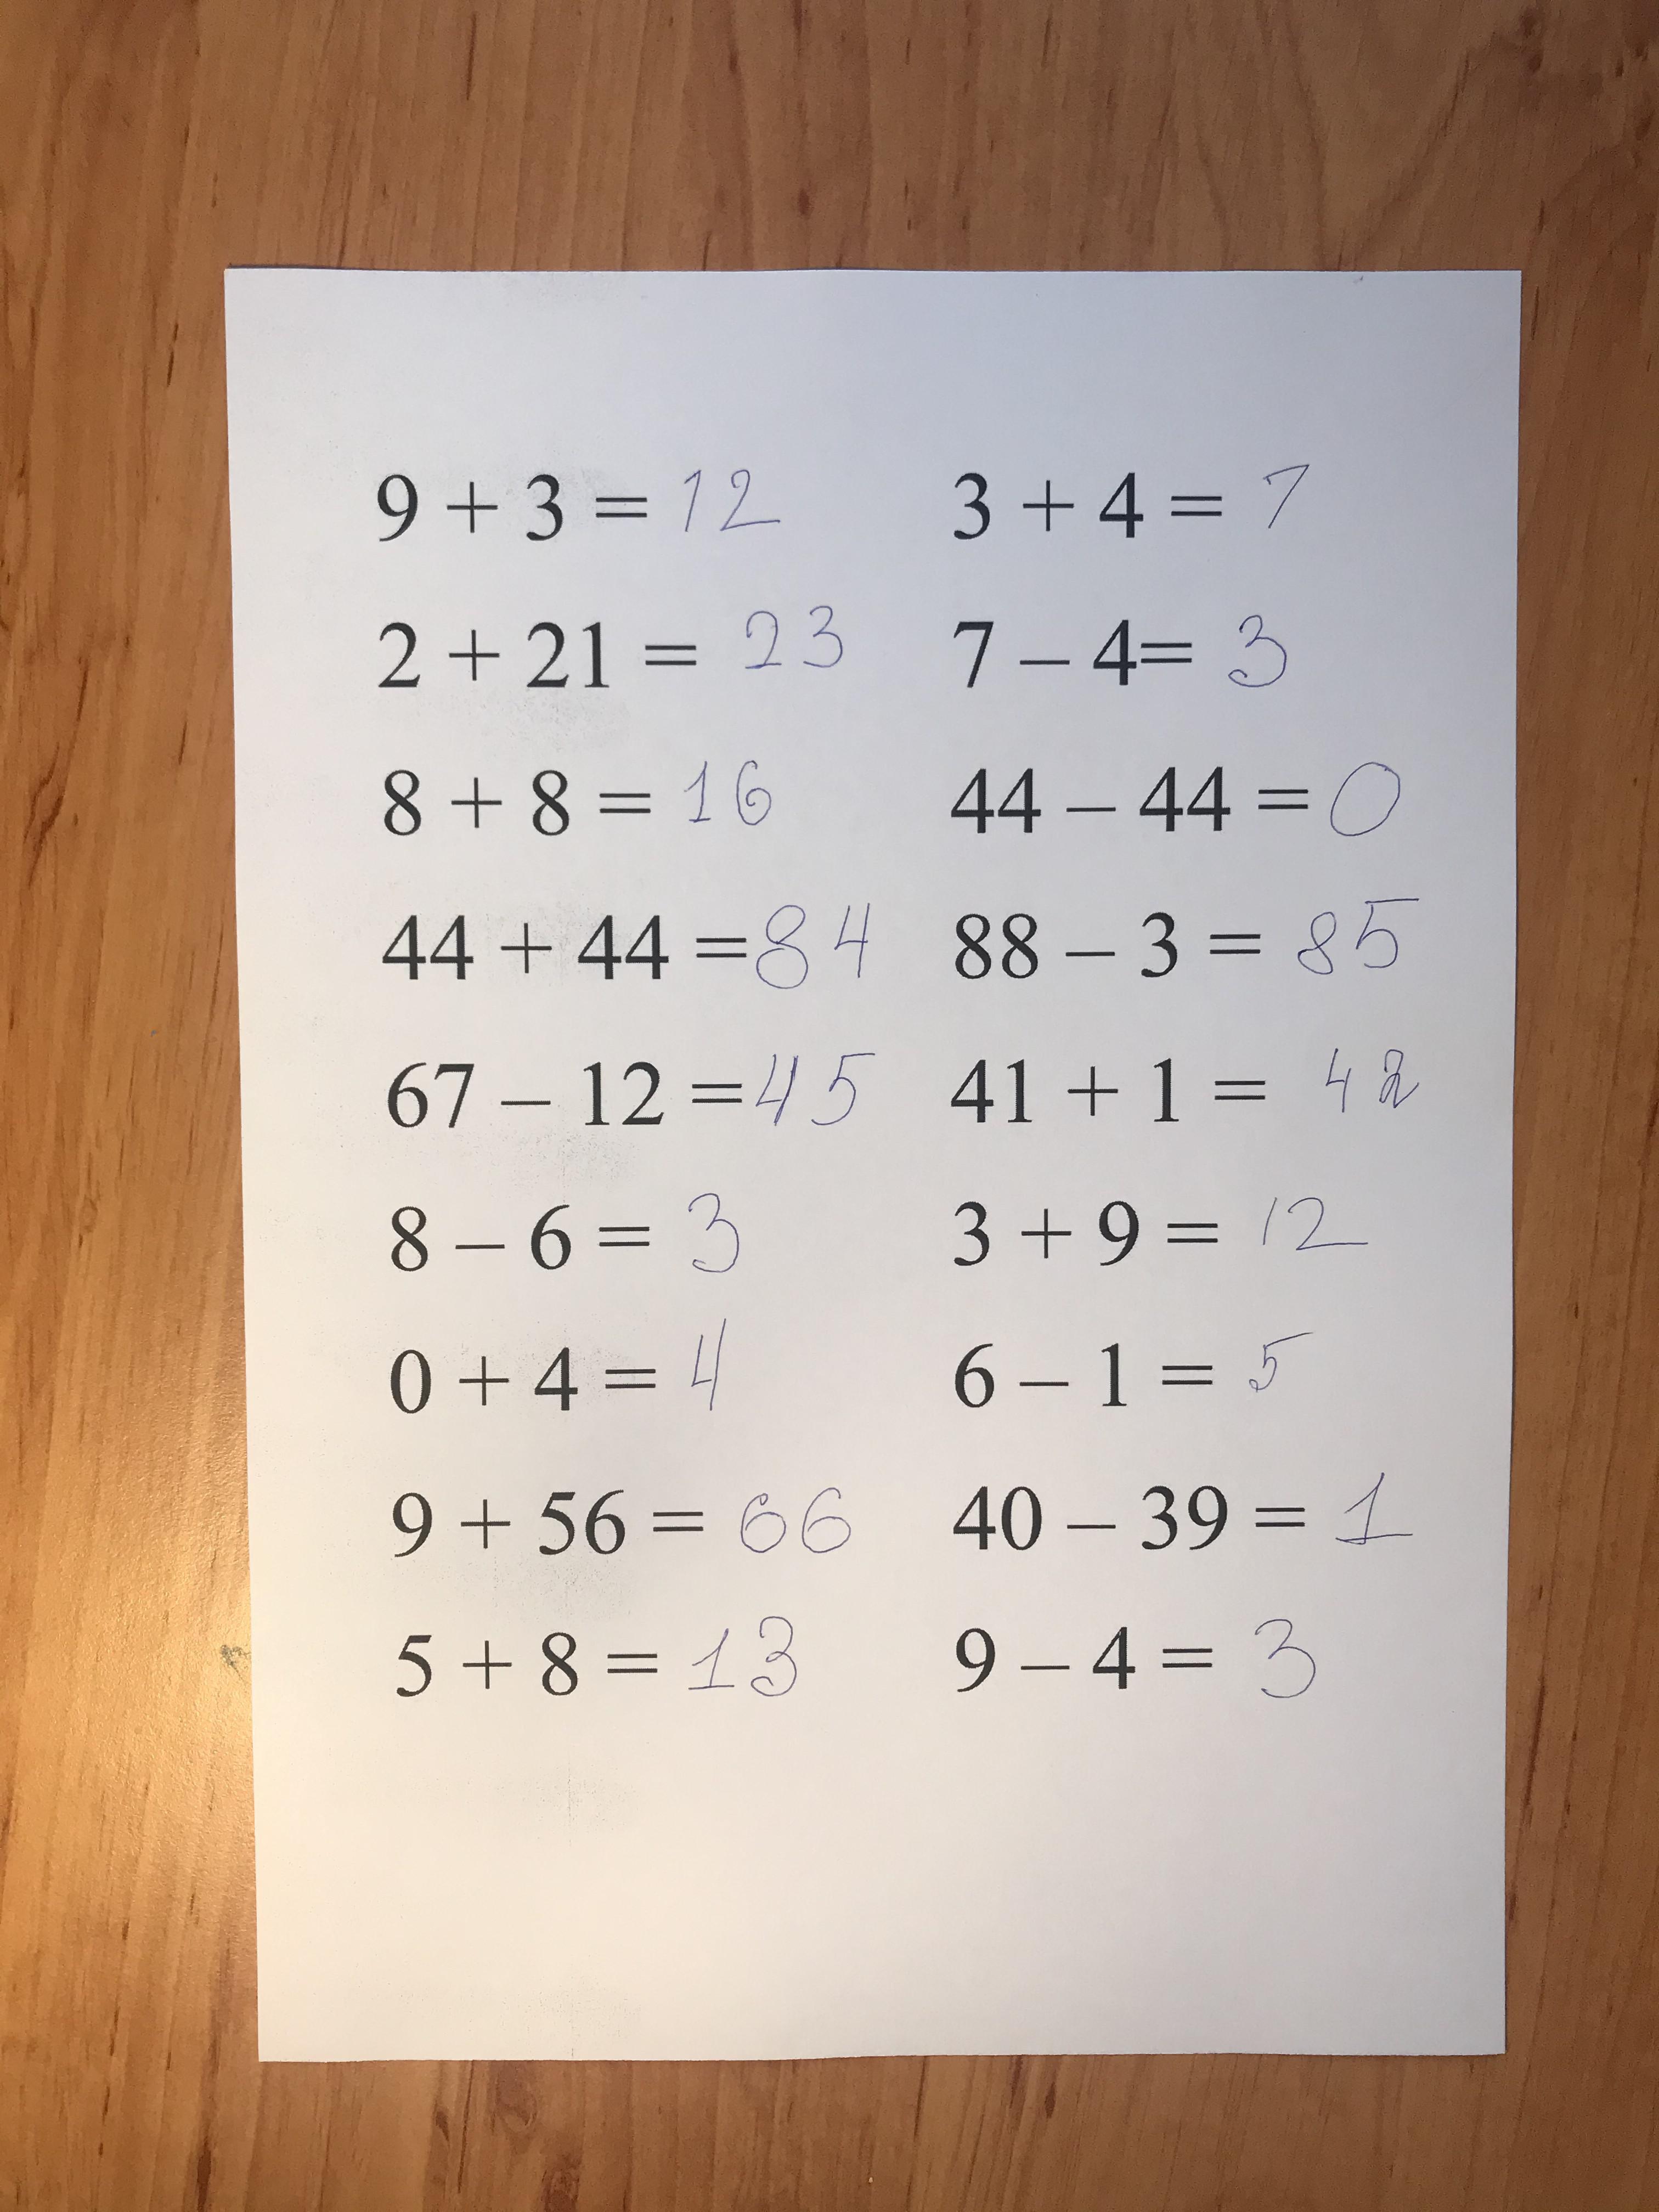 9 + 3 = 12
2 + 21 = 23
8 + 8 = 16
44 + 44 = 84
67 – 12 = 45
8 – 6 = 3
0 + 4 = 4
9 + 56 = 66
5 + 8 = 13
3 + 4 = 7
7 – 4= 3
44 – 44 = 0
88 – 3 = 85
41 + 1 = 42
3 + 9 = 12
6 – 1 = 5
40 – 39 = 1
9 – 4 = 3